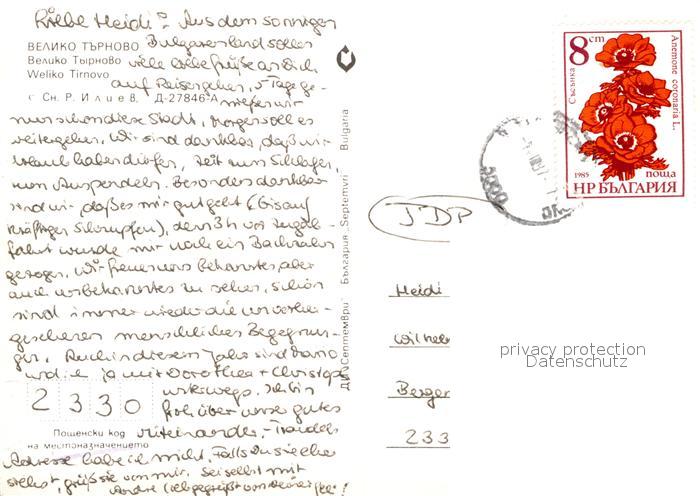 Liebe Heidi! Aus dem sonnigen
ВЕЛИКО ТЪРНОВО Bulgarenland sollen
Велико Тырново viele liebe Grüße an Dich
Weliko Tirnovo auf Reisen gehen. 5 Tage ge-
г Сн. Р. Илиев. Д-27846-А nießen wir
nun schon diese Stadt, morgen soll es
weitergehen. Wir sind dankbar, daß wir
Urlaub haben dürfen, Zeit zum Schlafen,
zum Auspendeln. Besonders dankbar
sind wir, daß es mir gut geht (bis auf
kräftigen Schnupfen), denn 3h vor
fahrt wurde mir noch ein Backzahn
gezogen. Wir freuen uns bekanntes, aber
auch unbekanntes zu sehen, schön
sind immer wieder die unvorher-
gesehenen menschlichen Begegnun-
gen. Auch in diesem Jahr sind Dario
und ich ja mit Dorothea + Christoph
unterwegs. Ich bin
2330 froh über unser gutes
Пощенски код Miteinander.
на местоназначението
Adresse habe ich nicht. Falls Du sie eher
siehst, grüß sie von mir. Sei selbst mit
Andre lieb gegrüßt von
ДИ „Септември България Septemvri Bulgaria
8 cm
Anemone coronaria L.
Съсънка
1985 поща
НР БЪЛГАРИЯ
JDP
Heidi
Wilhel
Berger
233
privacy protection
Datenschutz